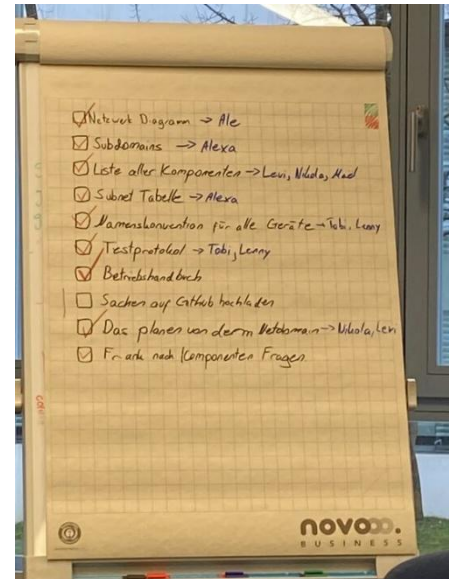 ☑ Netzwerk Diagramm → Ale
☑ Subdomains → Alexa
☑ Liste aller Komponenten → Levi, Nikola, Mael
☑ Subnet Tabelle → Alexa
☑ Namenskonvention für alle Geräte → Tobi, Lenny
☑ Testprotokol → Tobi, Lenny
☑ Betriebshandbuch
☐ Sachen auf Github hochladen
☑ Das planen von derm Netdomain → Nikola, Levi
☑ Frank nach Componenten Fragen
novo
BUSINESS